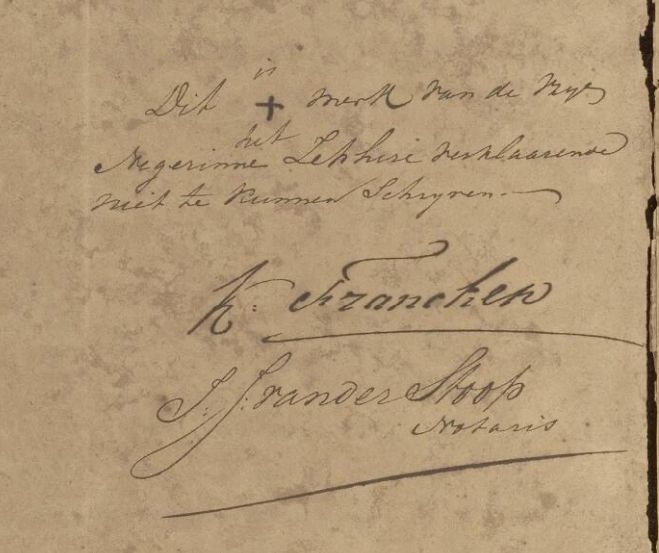 is
Dit + merk van de vrye
het
Negerinne Zephire verklaarende
niet te kunnen Schryven.
K: Francken
J: J: van der Stoop
Notaris